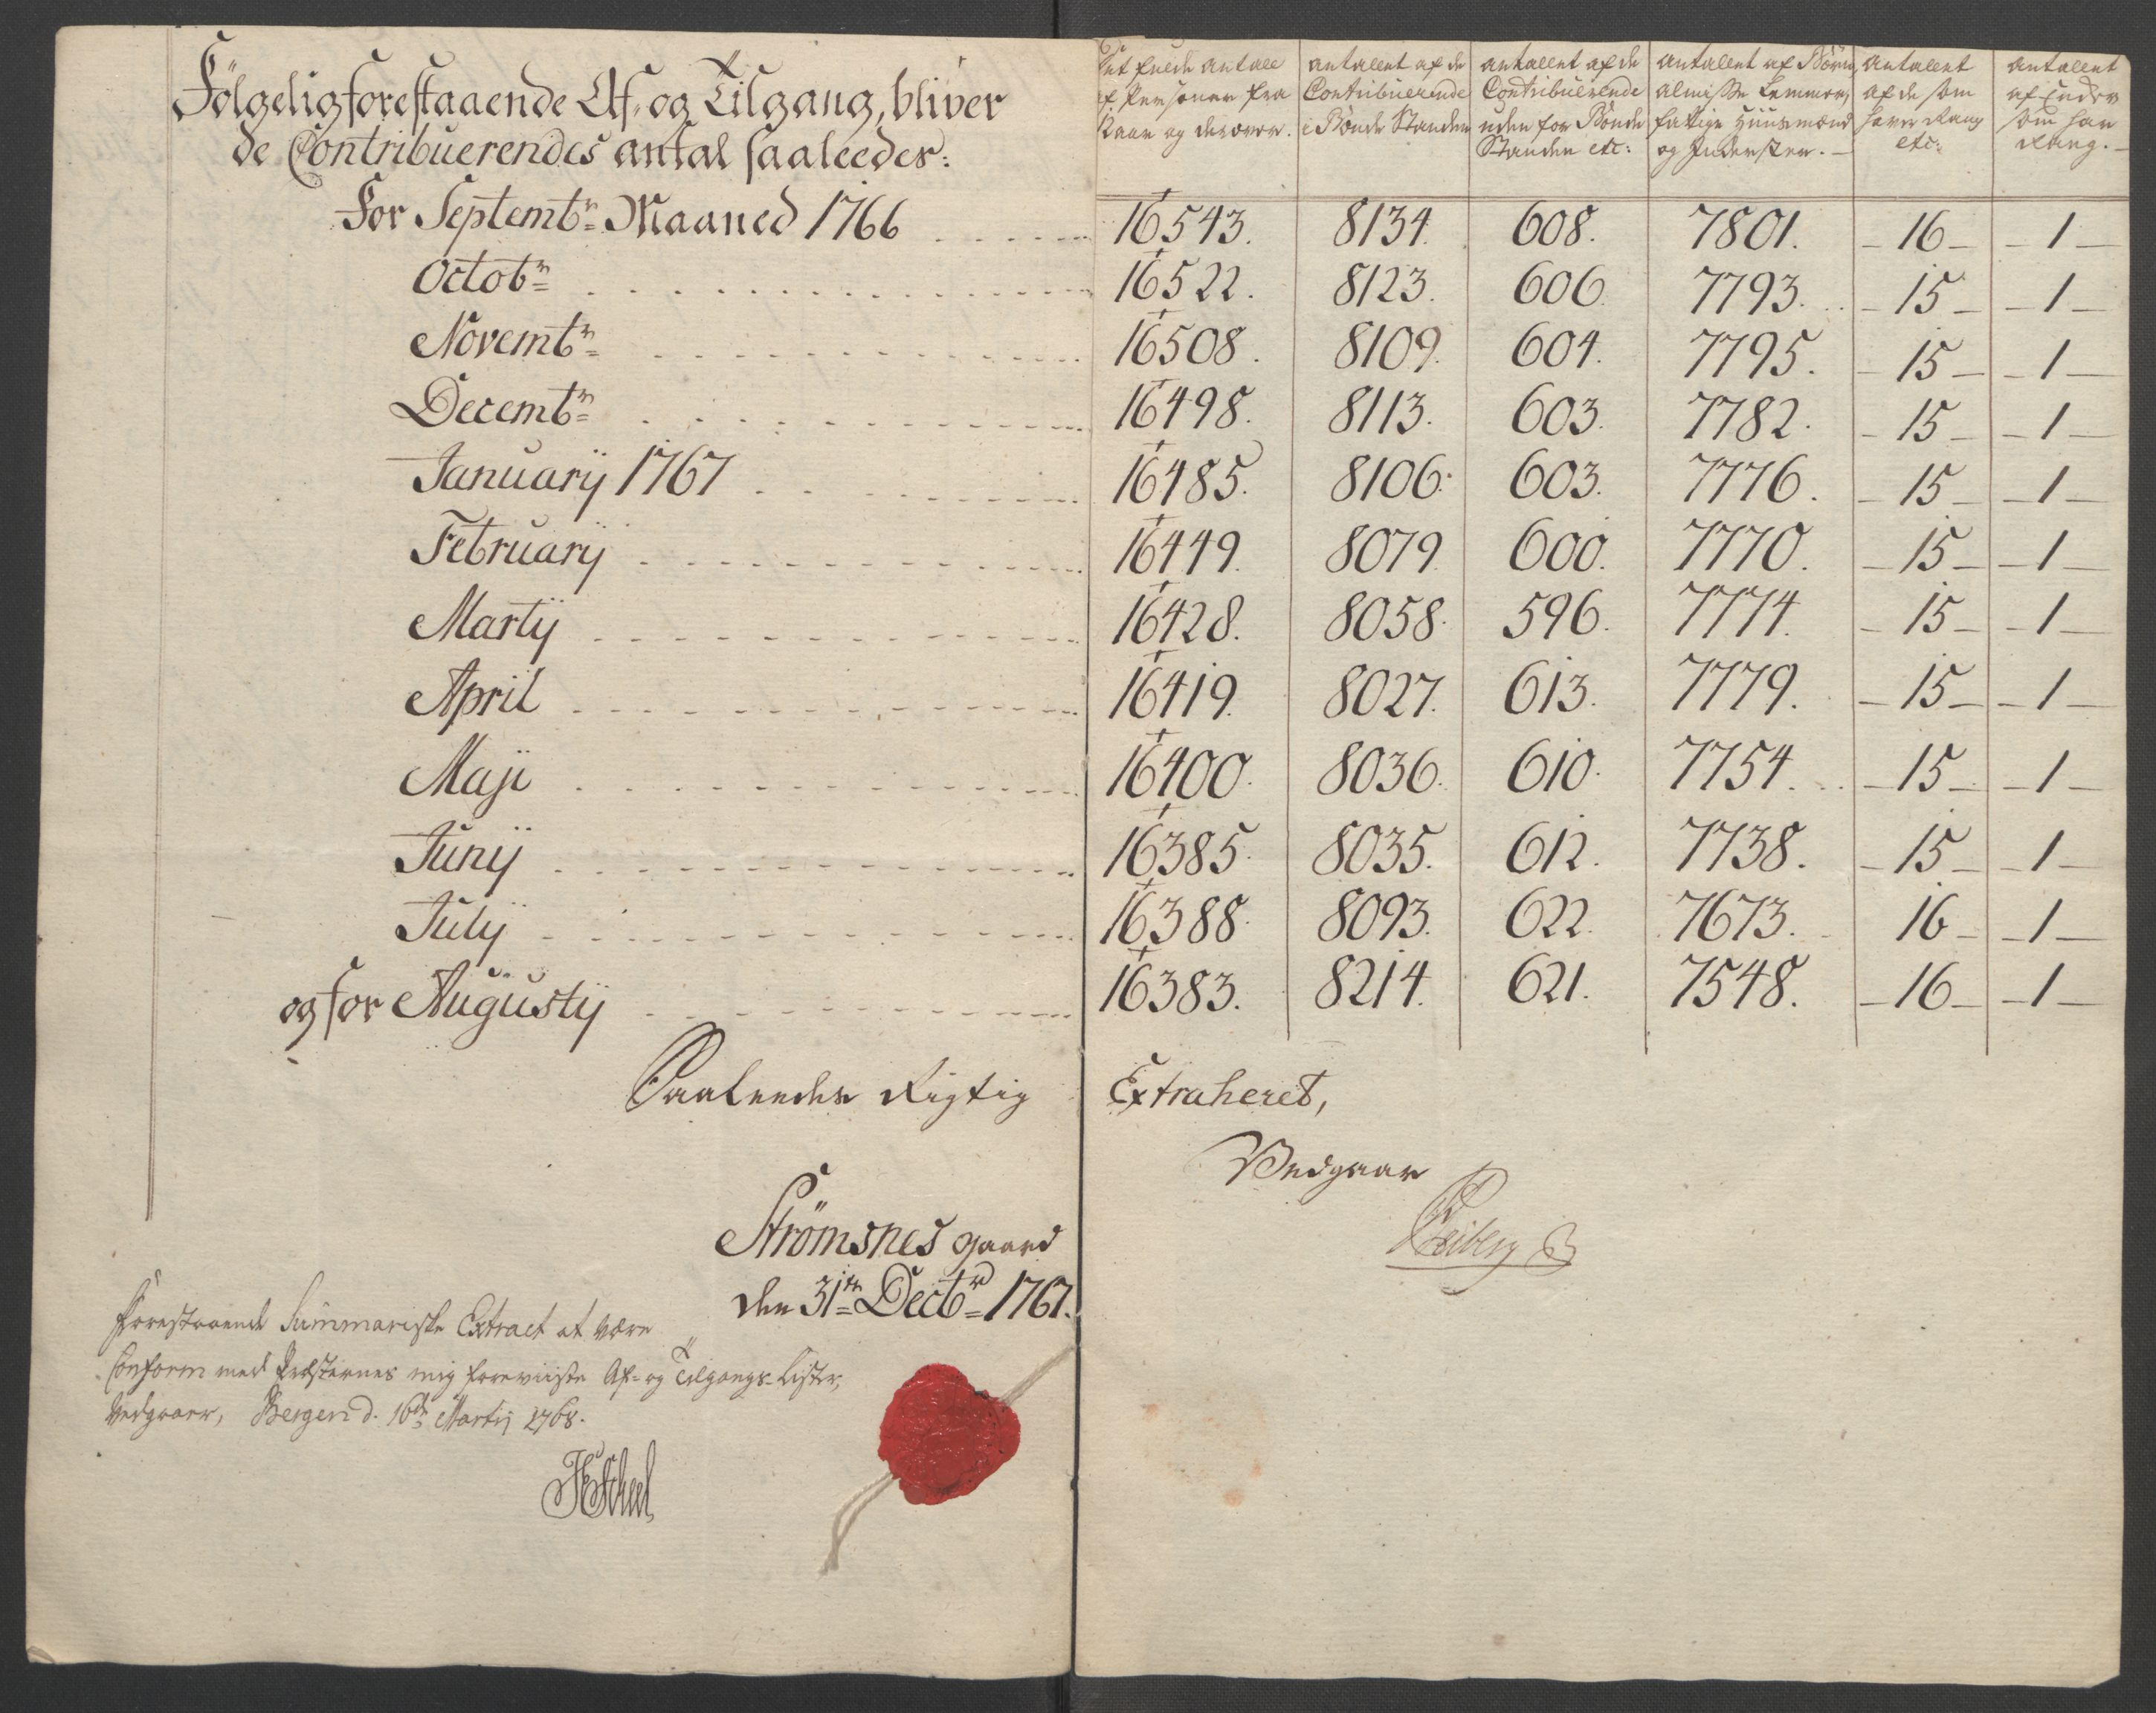 Følgelig forestaaende Af- og Tilgang, bliver
de Contribuerendes antal saaleedes:
antallet af de Contribuerende i Bonde Standen
antallet af de Contribuerende uden for Bonde Standen etc:
antallet af Børn, almisse Lemmer, fattige Huusmænd og Inderster.
antallet af de som haver Rang etc:
antallet af som har Rang.
For Septembr Maaned 1766 16543. 8134. 608. 7801. 16 1
Octobr 16522. 8123. 606. 7793. 15 1
Novembr 16508. 8109. 604. 7795. 15 1
Decembr 16498. 8113. 603. 7782. 15 1
Januarij 1767 16485. 8106. 603. 7776. 15 1
Februarij 16449. 8079. 600. 7770. 15 1
Martij 16428. 8058. 596. 7774. 15 1
April 16419. 8027. 613. 7779. 15 1
Maji 16400. 8036. 610. 7754. 15 1
Junij 16385. 8035. 612. 7738. 15 1
Julij 16388. 8093. 622. 7673. 16 1
og for Augustij 16383. 8214. 621. 7548. 16 1
Saaleedes Rigtig Extraheret,
Vedgaar
Strømsnes gaard
den 31te Dectbr 1767.
Forestaaende Summariske Extract at være
Conform med Præsternes mig foreviiste Af- og Tilgangs-Lister,
Vedgaaer, Bergen d. 16de Martij 1768.